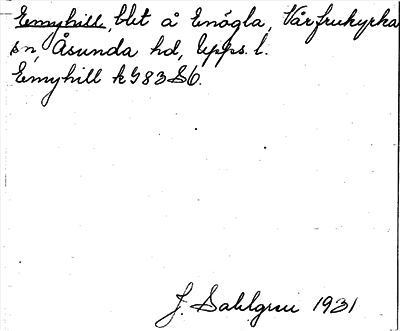 Emyhill, blt å Enögla, Vårfrukyrka
sn, Åsunda hd, Upps. l.
Emyhill k 983 S6.
J. Sahlgren 1931